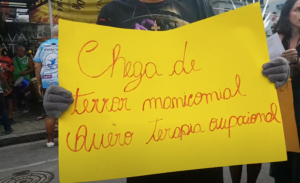 Chega de
terror manicomial
Quero terapia ocupacional